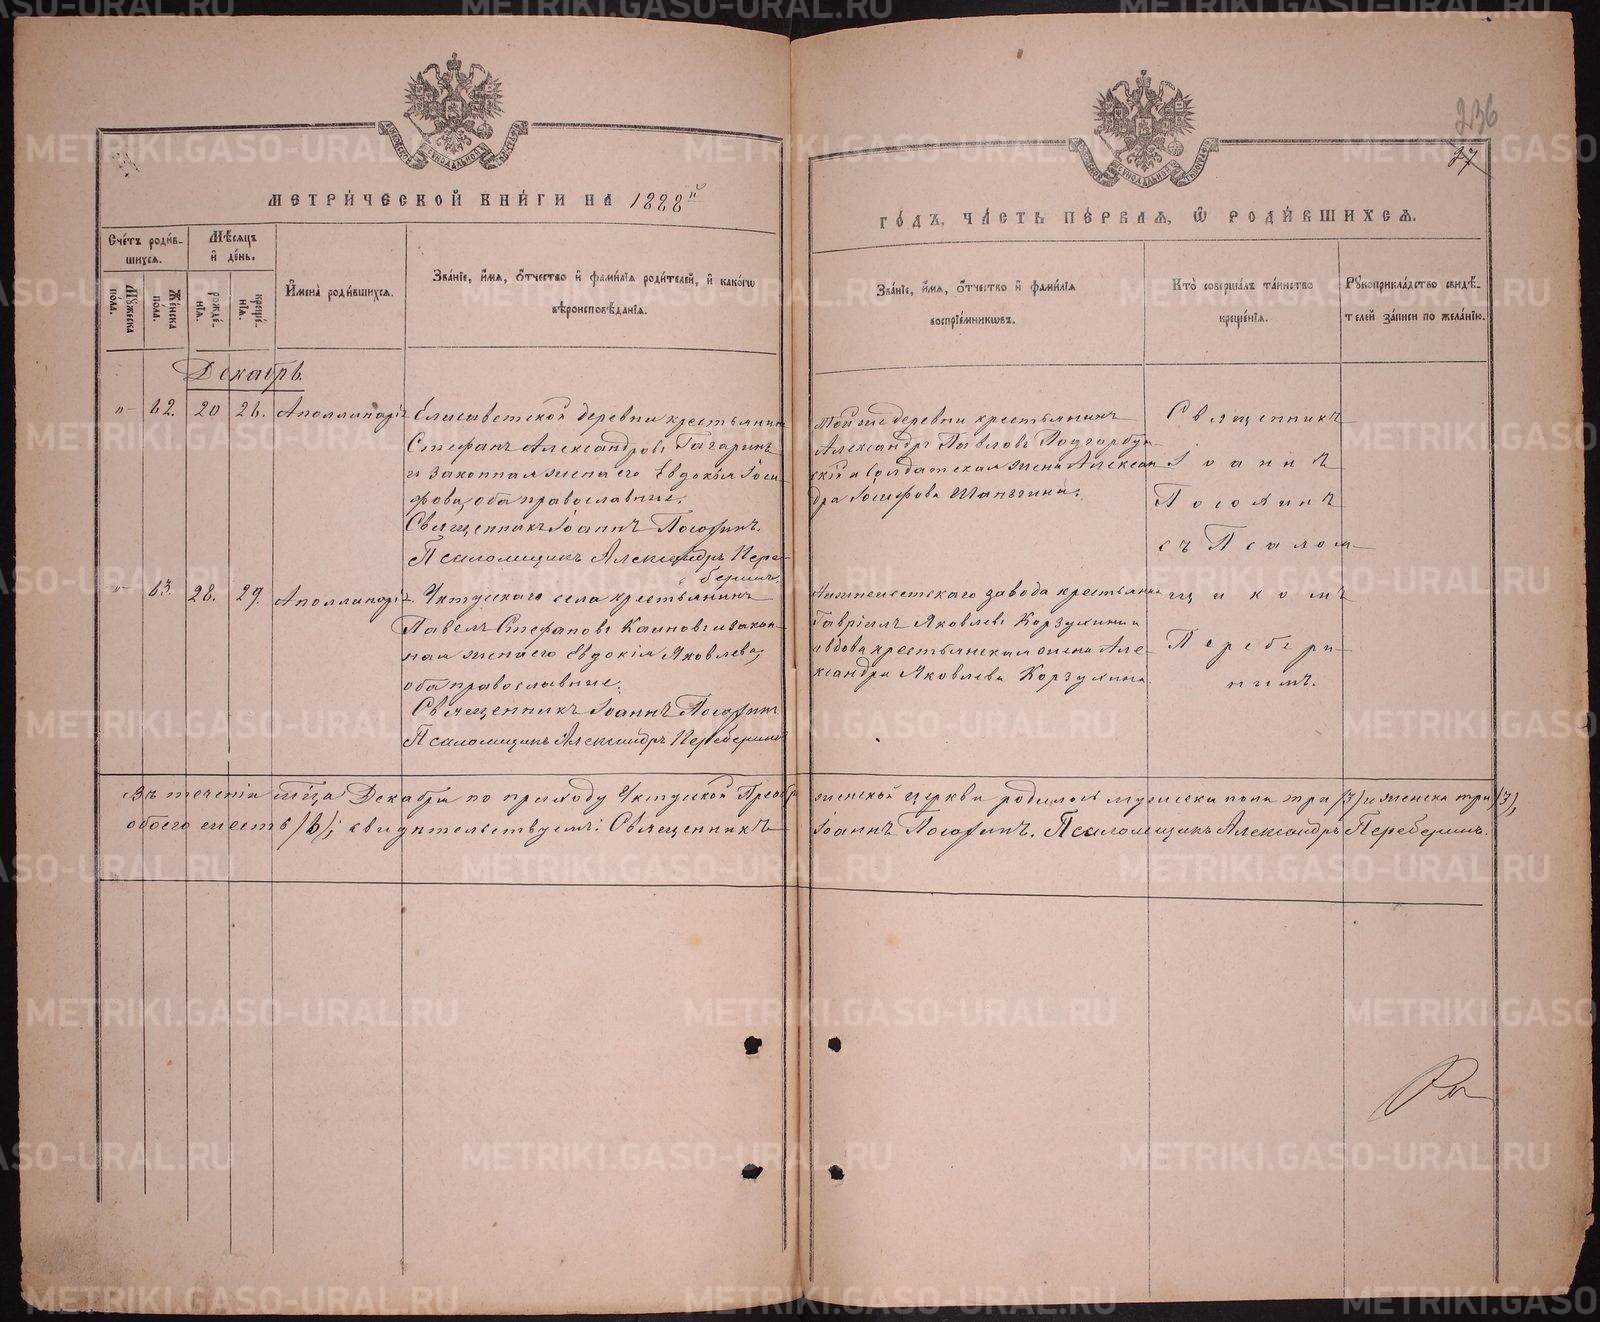 236
37
МЕТРИ́ЧЕСКОЙ КНИ́ГИ НА 1888й
ГО́ДЪ, ЧА́СТЬ ПЕ́РВАЯ, Ѡ РОДИ́ВШИХСЯ.
Сче́тъ роди́вшихся.
Мѣсяцъ и де́нь.
Му́жеска по́ла.
Же́нска по́ла.
рожде́нія.
креще́нія.
Имена̀ роди́вшихся.
Зва́ніе, и́мя, о́тчество и фами́лія роди́телей, и како́гѡ
вѣроисповѣ́данія.
Зва́ніе, и́мя, о́тчество и фами́лія
воспріе́мникѡвъ.
Кто̀ соверша́лъ та́инство
креще́нія.
Рукоприкла́дство свидѣ́-
телей за́писи по жела́нію.
Декабрь.
"- 62. 20 26. Аполлинарія
Елисаветской деревни крестьянинъ
Стефанъ Александровъ Гагаринъ
и законная жена его Евдокія Іоси-
фова, оба православные.
Священникъ Іоаннъ
Псаломщикъ Александръ Пере-
беринъ
Той же деревни крестьянинъ
Александръ Павловъ Подгорбун-
скій и солдатская жена Алексан
дра Іосифова
Священникъ
Іоаннъ
съ Псалом-
щикомъ
Перебери-
нымъ.
"- 63. 28. 29. Аполлинарія
Уктусскаго села крестьянинъ
Павелъ Стефановъ и закон-
ная жена его Евдокія Яковлева,
оба православные.
Священникъ Іоаннъ
Псаломщикъ Александръ Переберинъ
Нижнеисетскаго завода крестьянинъ
Гавріилъ Яковлевъ Корзухинъ и
вдова крестьянская жена Але-
ксандра Яковлева Корзухина
Въ теченіи м-ца Декабря по приходу Уктусской Преобра женской церкви родилось мужеска пола три /3/ и женска три /3/,
обоего шесть /6/; свидѣтельствуемъ: Священникъ Іоаннъ Псаломщикъ Александръ Переберинъ.
METRIKI.GASO-URAL.RU